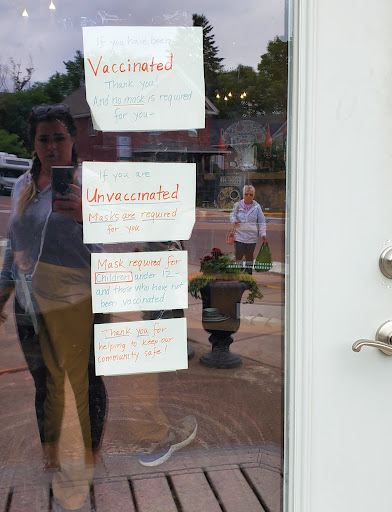 If you have been
Vaccinated
Thank you!
And no mask is required
for you~
If you are
Unvaccinated
Masks are required
for you
Mask required for
Children under 12-
and those who have not
been vaccinated
Thank you for
helping to keep our
community safe!